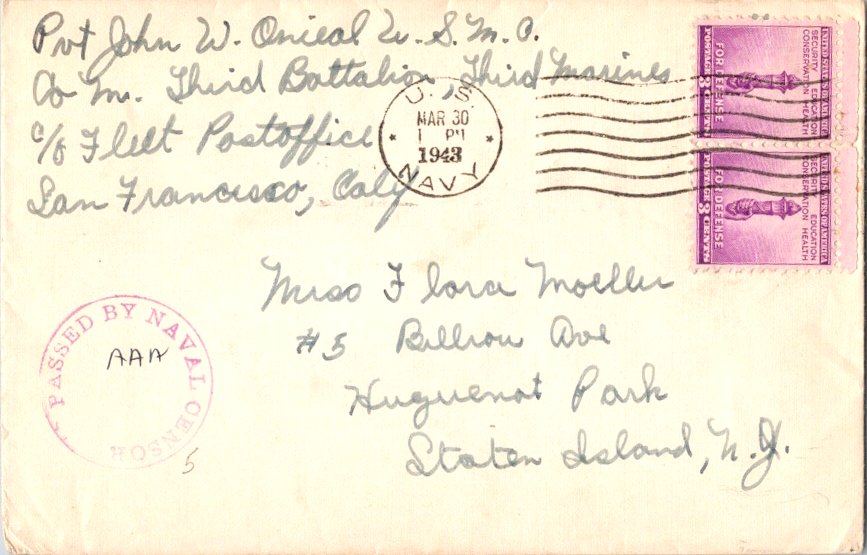 Pvt John W. Onieal U. S. M. C.
Co M. Third Battalion, Third Marines
c/o Fleet Postoffice
San Francisco, Caly
U. S. NAVY
MAR 30
1 PM
1943
UNITED STATES OF AMERICA
SECURITY EDUCATION
CONSERVATION HEALTH
FOR DEFENSE
POSTAGE 3 CENTS
UNITED STATES OF AMERICA
SECURITY EDUCATION
CONSERVATION HEALTH
FOR DEFENSE
POSTAGE 3 CENTS
Miss Flora Moeller
#5 Billiou Ave
Huguenot Park
Staten Island, N.Y.
PASSED BY NAVAL CENSOR
AAA
5